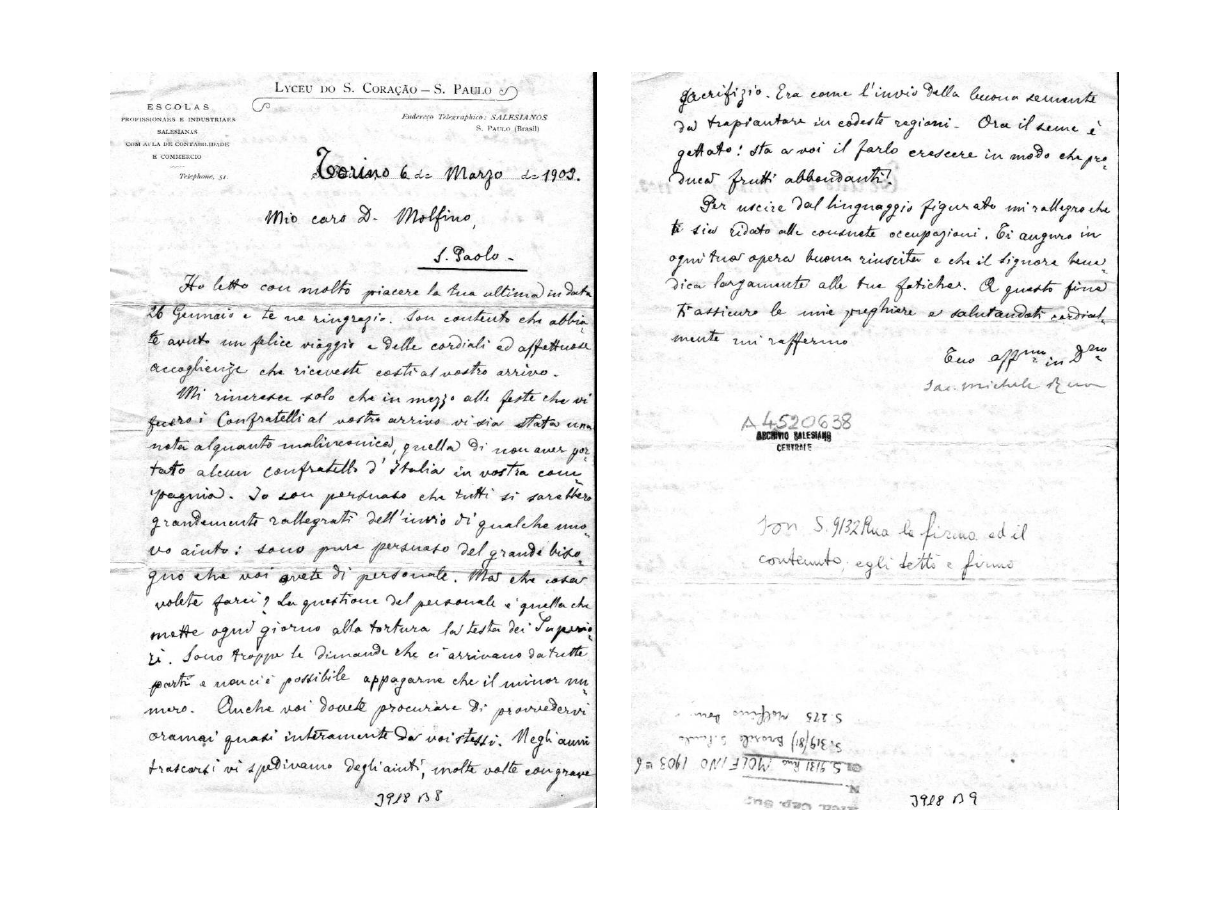 LYCEU DO S. CORAÇÃO – S. PAULO
ESCOLAS
PROFISSIONAES E INDUSTRIAES
SALESIANAS
COM AULA DE CONTABILIDADE
E COMMERCIO
Telephone, 51
Endereço Telegraphico: SALESIANOS
S. PAULO (Brasil)
Torino 6 de Marzo de 1903.
Mio caro D. Molfino,
S. Paolo -
Ho letto con molto piacere la tua ultima in data
26 Gennaio e te ne ringrazio. Son contento che abbia-
te avuto un felice viaggio e delle cordiali ed affettuose
accoglienze che riceveste costì al vostro arrivo.
Mi rincresce solo che in mezzo alle feste che vi
fecero i Confratelli al vostro arrivo vi sia stata una
nota alquanto malinconica, quella di non aver por-
tato alcun confratello d'Italia in vostra com-
pagnia. Io son persuaso che tutti si sarebbero
grandemente rallegrati dell'invio di qualche nuo-
vo aiuto: sono pure persuaso del grande biso-
gno che voi avete di personale. Ma che cosa
volete farci? La questione del personale è quella che
mette ogni giorno alla tortura la testa dei Superio-
ri. Sono troppe le dimande che ci arrivano da tutte
parti e non ci è possibile appagarne che il minor nu-
mero. Anche voi dovete procurare di provvedervi
oramai quasi interamente da voi stessi. Negli anni
trascorsi vi spedivamo degli aiuti, molte volte con grave
3918 B 8
sacrifizio. Era come l'invio della buona semente
da trapiantare in codeste regioni. Ora il seme è
gettato: sta a voi il farlo crescere in modo che pro-
duca frutti abbondanti!
Per uscire dal linguaggio figurato mi rallegro che
ti sia ridato alle consuete occupazioni. Ti auguro in
ogni tua opera buona riuscita e che il Signore bene-
dica largamente alle tue fatiche. A questo fine
ti assicuro le mie preghiere e salutandoti cordial-
mente mi raffermo
Tuo affmo in D
Sac. Michele Rua
A 4520638
ARCHIVIO SALESIANO
CENTRALE
S. 9132 Rua la firma ed il
contenuto; egli dettò e firmò
S. 275 Molfino
S. 319(81) Brasile S. Paulo
S. 9131 Rua MOLFINO 1903
N.
Arch. Cap. Sup.
3918 B 9